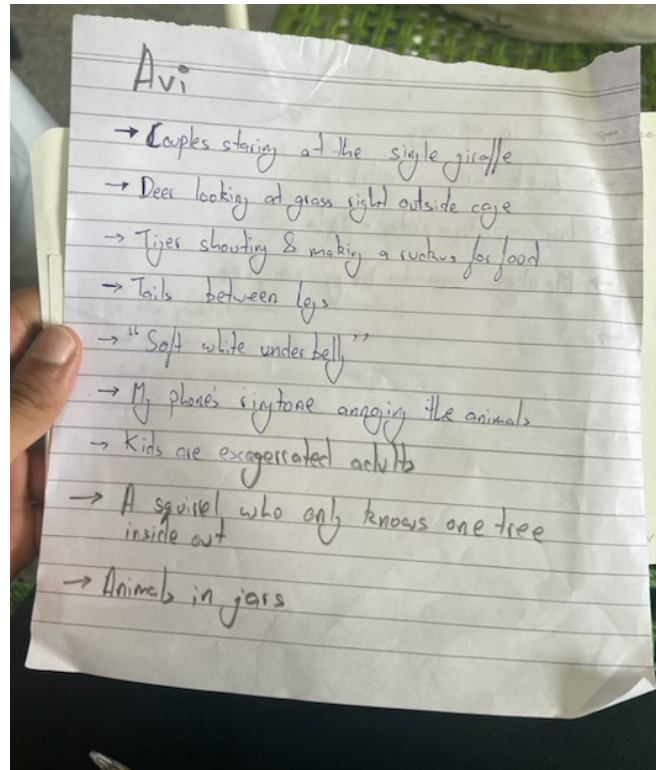 Avi
→ Couples staring at the single giraffe
→ Deer looking at grass right outside cage
→ Tiger shouting & making a ruckus for food
→ Tails between legs
→ "Soft white under belly"
→ My phone's ringtone annoying the animals
→ Kids are exagerrated adults
→ A squirel who only knows one tree
inside out
→ Animals in jars